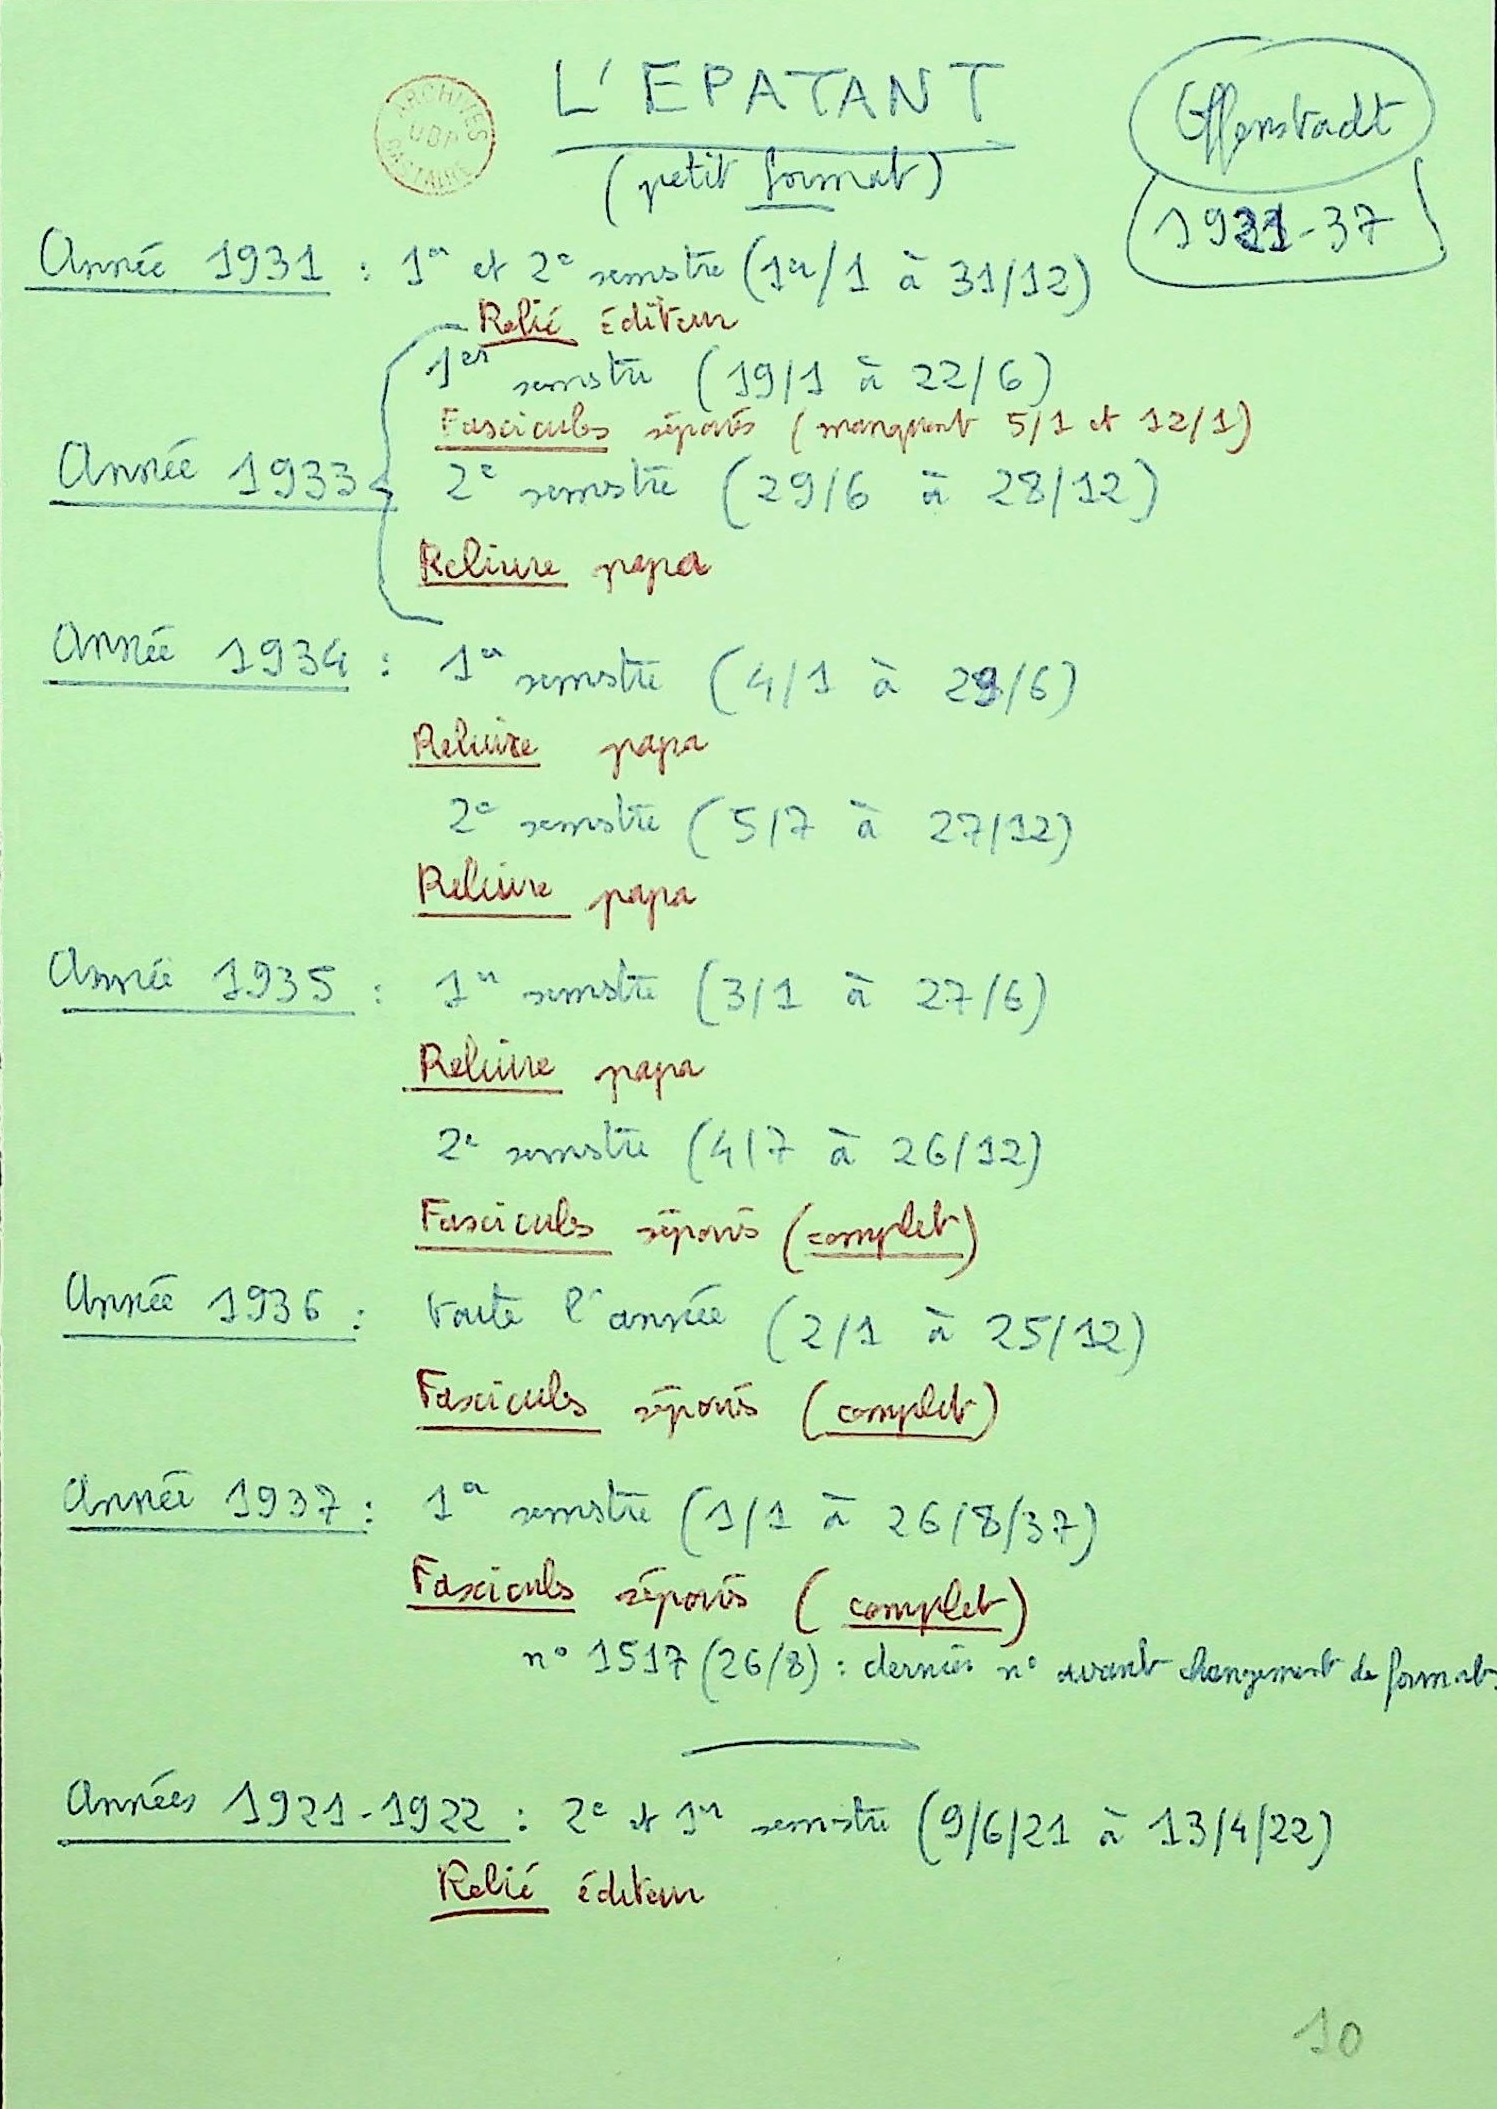 L'EPATANT
(petit format)
Offenstadt
1921-37
ARCHIVES
Année 1931 : 1er et 2e semestre (1er/1 à 31/12)
Relié éditeur
Année 1933
1er semestre (19/1 à 22/6)
Fascicules séparés (manquent 5/1 et 12/1)
2e semestre (29/6 à 28/12)
Reliure papa
Année 1934 : 1er semestre (4/1 à 29/6)
Reliure papa
2e semestre (5/7 à 27/12)
Reliure papa
Année 1935 : 1er semestre (3/1 à 27/6)
Reliure papa
2e semestre (4/7 à 26/12)
Fascicules séparés (complet)
Année 1936 : toute l'année (2/1 à 25/12)
Fascicules séparés (complet)
Année 1937 : 1er semestre (1/1 à 26/8/37)
Fascicules séparés (complet)
n° 1517 (26/8) : dernier n° avant changement de format.
Années 1921-1922 : 2e et 1er semestre (9/6/21 à 13/4/22)
Relié éditeur
10